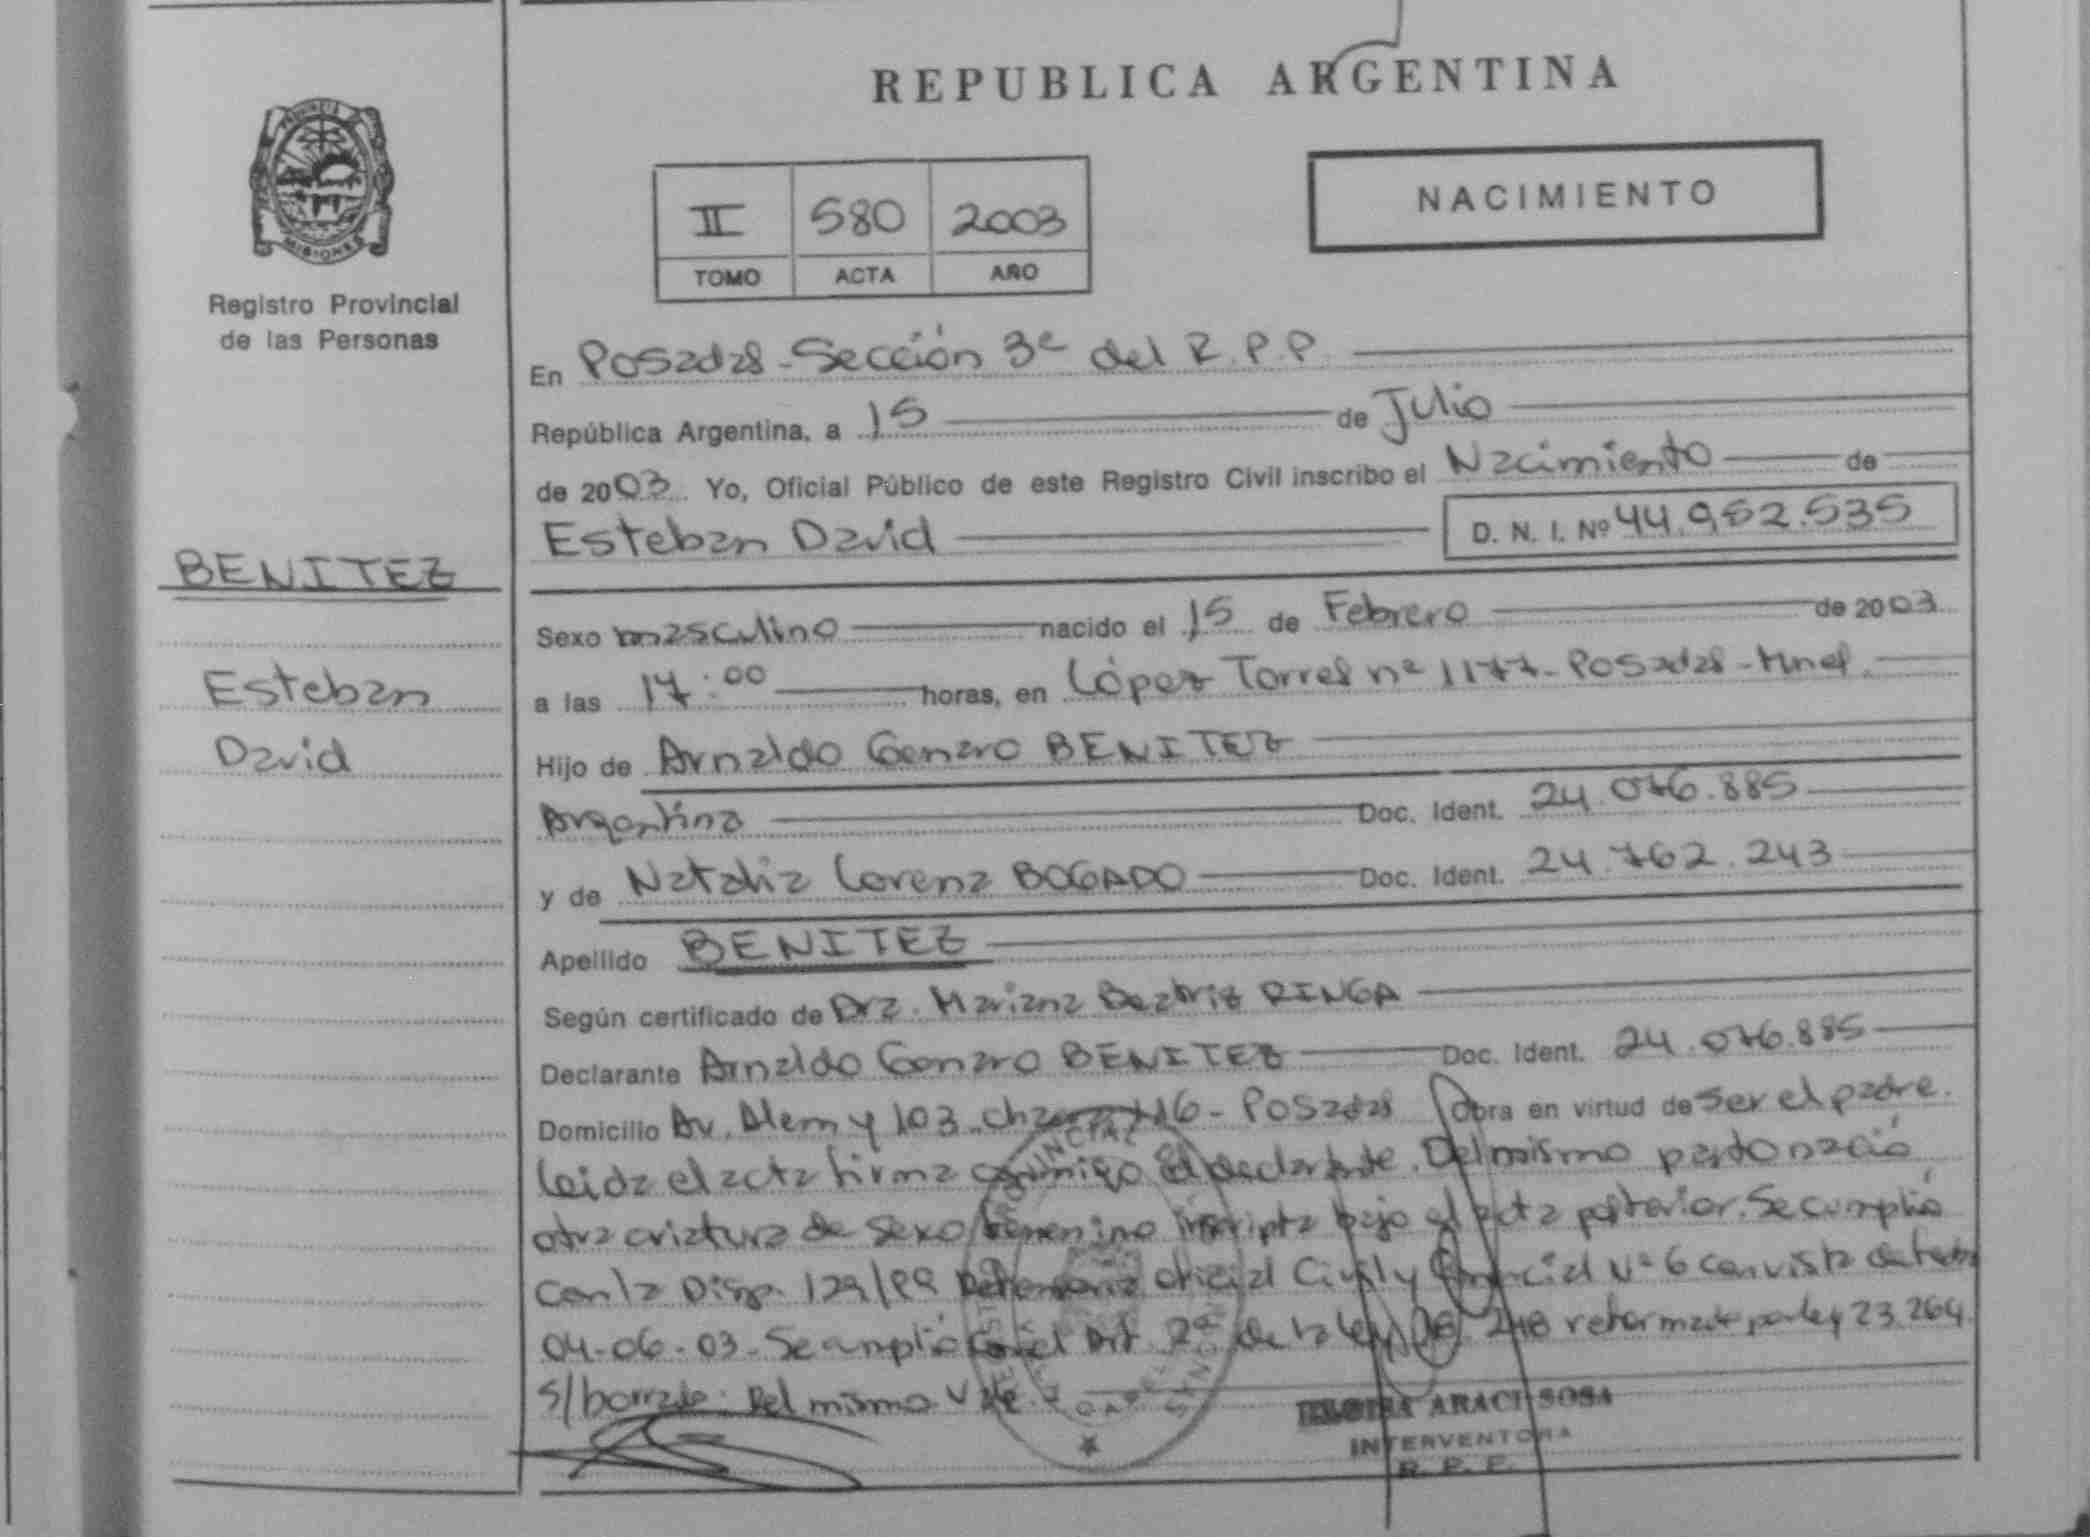 REPUBLICA ARGENTINA
PROVINCIA
MISIONES
Registro Provincial
de las Personas
II 580 2003
TOMO ACTA AÑO
NACIMIENTO
En Posadas - Sección 3ª del R.P.P.
República Argentina, a 15 de Julio
de 2003. Yo, Oficial Público de este Registro Civil inscribo el Nacimiento de
Esteban David D. N. I. Nº 44.952.535
BENITEZ
Esteban
David
Sexo masculino nacido el 15 de Febrero de 2003
a las 17:00 horas, en López Torres nº 1177 - Posadas - Mnes.
Hijo de Arnaldo Genaro BENITEZ
Argentina Doc. Ident. 24.076.885
y de Natalia Lorena BOGADO Doc. Ident. 24.762.243
Apellido BENITEZ
Según certificado de Dra. Mariana Beatriz RINGA
Declarante Arnaldo Genaro BENITEZ Doc. Ident. 24.076.885
Domicilio Av. Alem y 103 - Posadas Obra en virtud de ser el padre.
Leida el acta firma conmigo el declarante. Del mismo parto nació
otra criatura de sexo femenino inscripta bajo el acta posterior. Se cumplió
con la Disp. 129/89 Defensoria oficial Civil y Nº 6 con vista de fecha
04-06-03. Se cumplió con el Art. 2º de la ley 18.248 reformada por ley 23.264.
S/borrado: Del mismo Vale.
ARACI SOSA
INTERVENTORA
R. P. P.